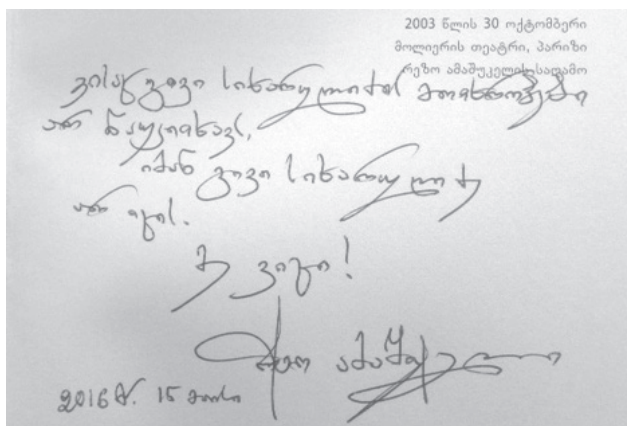 2003 წლის 30 ოქტომბერი
მოლიერის თეატრი, პარიზი
რეზო ამაშუკელის საღამო
ვისაც გივი სიხარულიძის მოთხრობები
არ წაუკითხავს,
იმან გივი სიხარულიძე
არ იცის.
მე ვიცი!
რეზო ამაშუკელი
2016 წ. 15 მაისი